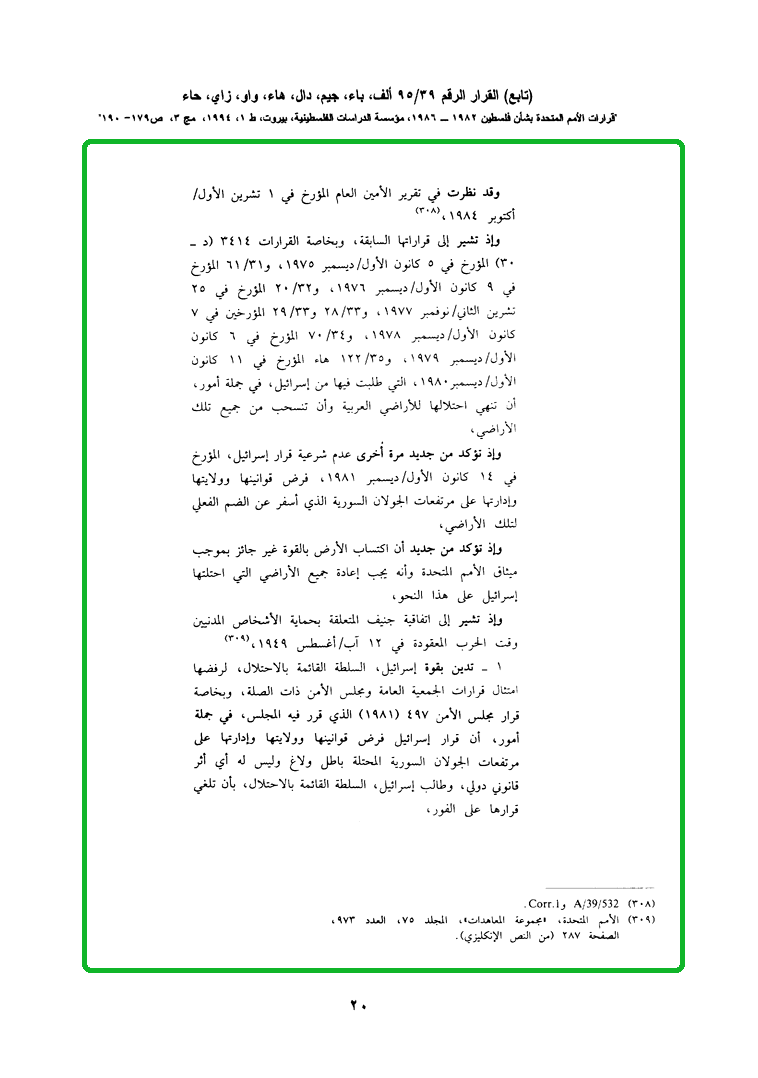 (تابع) القرار الرقم ٩٥/٣٩ ألف، باء، جيم، دال، هاء، واو، زاي، حاء
"قرارات الأمم المتحدة بشأن فلسطين ١٩٨٢ ــ ١٩٨٦، مؤسسة الدراسات الفلسطينية، بيروت، ط ١، ١٩٩٤، مج ٣، ص١٧٩- ١٩٠"
وقد نظرت في تقرير الأمين العام المؤرخ في ١ تشرين الأول/
أكتوبر ١٩٨٤،(٣٠٨)
وإذ تشير إلى قراراتها السابقة، وبخاصة القرارات ٣٤١٤ (د ــ
٣٠) المؤرخ في ٥ كانون الأول/ديسمبر ١٩٧٥، و٦١/٣١ المؤرخ
في ٩ كانون الأول/ديسمبر ١٩٧٦، و٢٠/٣٢ المؤرخ في ٢٥
تشرين الثاني/نوفمبر ١٩٧٧، و٢٨/٣٣ و٢٩/٣٣ المؤرخين في ٧
كانون الأول/ديسمبر ١٩٧٨، و٧٠/٣٤ المؤرخ في ٦ كانون
الأول/ديسمبر ١٩٧٩، و١٢٢/٣٥ هاء المؤرخ في ١١ كانون
الأول/ديسمبر١٩٨٠، التي طلبت فيها من إسرائيل، في جملة أمور،
أن تنهي احتلالها للأراضي العربية وأن تنسحب من جميع تلك
الأراضي،
وإذ تؤكد من جديد مرة أُخرى عدم شرعية قرار إسرائيل، المؤرخ
في ١٤ كانون الأول/ديسمبر ١٩٨١، فرض قوانينها وولايتها
وإدارتها على مرتفعات الجولان السورية الذي أسفر عن الضم الفعلي
لتلك الأراضي،
وإذ تؤكد من جديد أن اكتساب الأرض بالقوة غير جائز بموجب
ميثاق الأمم المتحدة وأنه يجب إعادة جميع الأراضي التي احتلتها
إسرائيل على هذا النحو،
وإذ تشير إلى اتفاقية جنيف المتعلقة بحماية الأشخاص المدنيين
وقت الحرب المعقودة في ١٢ آب/أغسطس ١٩٤٩،(٣٠٩)
١ ــ تدين بقوة إسرائيل، السلطة القائمة بالاحتلال، لرفضها
امتثال قرارات الجمعية العامة ومجلس الأمن ذات الصلة، وبخاصة
قرار مجلس الأمن ٤٩٧ (١٩٨١) الذي قرر فيه المجلس، في جملة
أمور، أن قرار إسرائيل فرض قوانينها وولايتها وإدارتها على
مرتفعات الجولان السورية المحتلة باطل ولاغ وليس له أي أثر
قانوني دولي، وطالب إسرائيل، السلطة القائمة بالاحتلال، بأن تلغي
قرارها على الفور،
(٣٠٨) A/39/532 و Corr.1.
(٣٠٩) الأمم المتحدة، «مجموعة المعاهدات»، المجلد ٧٥، العدد ٩٧٣،
الصفحة ٢٨٧ (من النص الإنكليزي).
٢٠